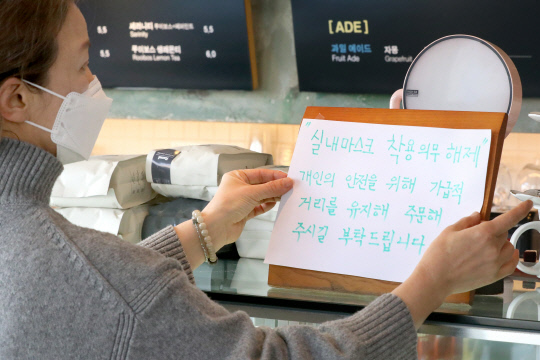 세레니티 루이보스+페퍼민트
5.5
Serinity
5.5
루이보스 레몬티
6.0
Rooibos Lemon Tea
[ADE]
과일 에이드
자몽
Fruit Ade
Grapefruit
실내마스크 착용의무 해제
개인의 안전을 위해 가급적
거리를 유지해 주문해
주시길 부탁드립니다